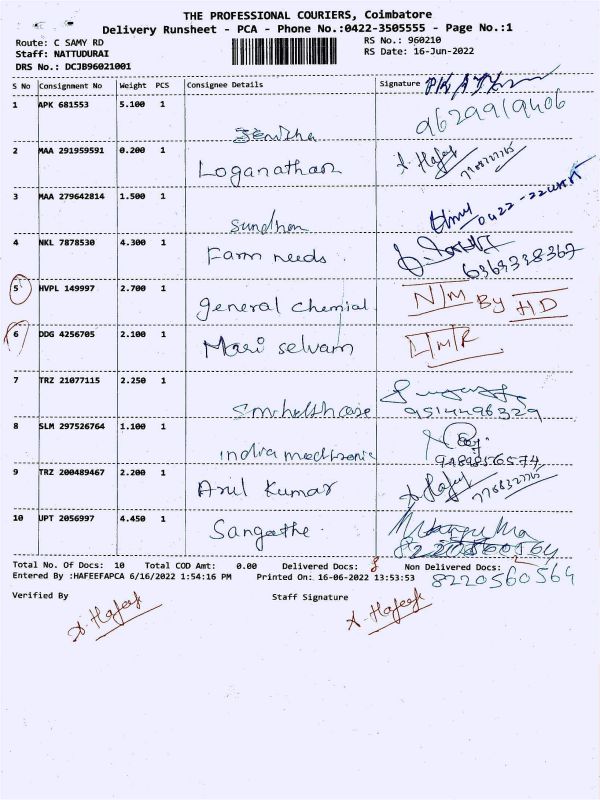 THE PROFESSIONAL COURIERS, Coimbatore
Delivery Runsheet - PCA - Phone No.:0422-3505555 - Page No.:1
Route: C SAMY RD
RS No.: 960210
Staff: NATTUDURAI
RS Date: 16-Jun-2022
DRS No.: DCJB96021001
S No Consignment No Weight PCS Consignee Details Signature
1 APK 681553 5.100 1
9629919406
2 MAA 291959591 0.200 1 Loganathan
A. Hafeef
3 MAA 279642814 1.500 1
Sundhan
4 NKL 7878530 4.300 1 Farm needs
6369338367
5 HVPL 149997 2.700 1 general chemial N/M By HD
6 DDG 4256705 2.100 1 Mari selvam
7 TRZ 21077115 2.250 1
9514496329
8 SLM 297526764 1.100 1
india medtronic
9 TRZ 200489467 2.200 1 Arul Kumar A. Hafeef
10 UPT 2056997 4.450 1 Sangathe
8220560564
Total No. Of Docs: 10 Total COD Amt: 0.00 Delivered Docs: 8 Non Delivered Docs: 2
Entered By :HAFEEFAPCA 6/16/2022 1:54:16 PM Printed On: 16-06-2022 13:53:53 8220560564
Verified By Staff Signature
A. Hafeef A. Hafeef